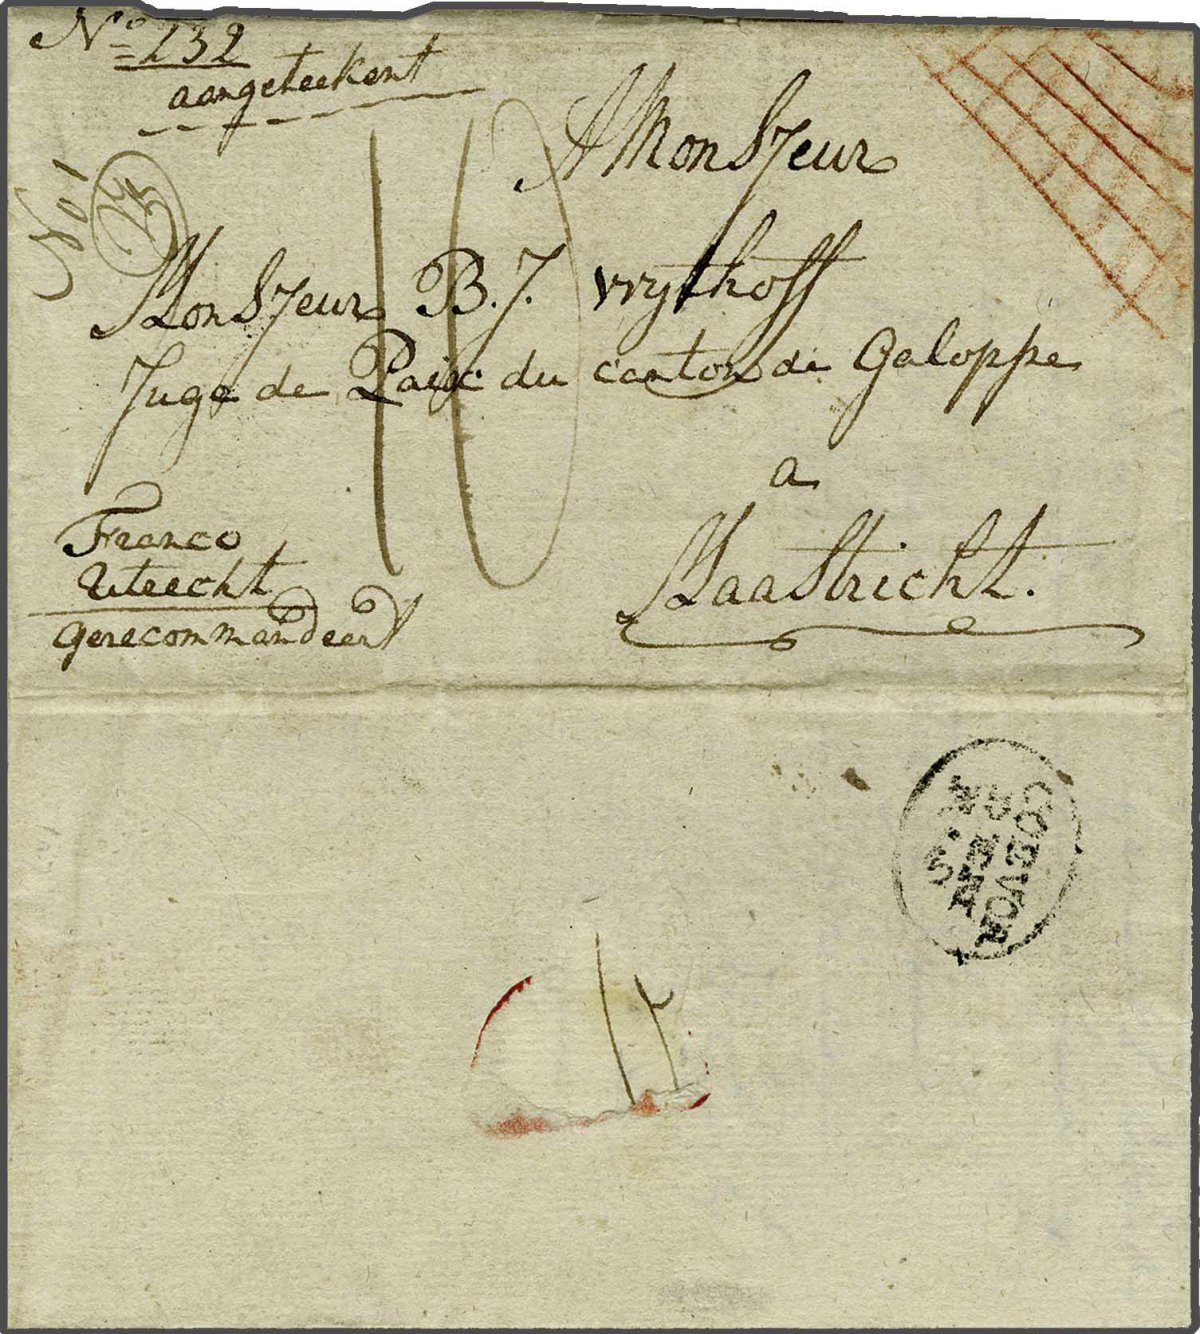 No 232
aangeteekent
No 1
10
A MonSieur
MonSieur B. J. vrythoff
Juge de Paix du canton de Galoppe
a
MaaStricht.
Franco
Utrecht
gerecommandeert
COEVOR